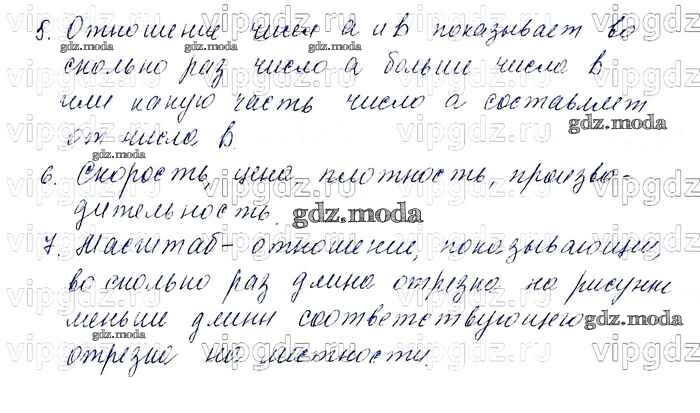 5. Отношение чисел a и b показывает во
сколько раз число a больше числа b
или какую часть число a составляет
от числа b
6. Скорость, цена, плотность, произво-
дительность.
7. Масштаб - отношение, показывающий,
во сколько раз длина отрезка на рисунке
меньше длины соответствующего
отрезка на местности.
gdz.moda
vipgdz.ru